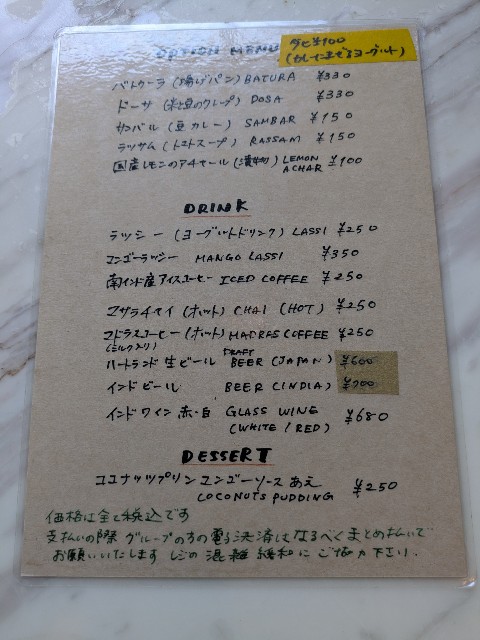 OPTION MENU
ダヒ¥100
(カレーにまぜるヨーグルト)
バトゥーラ (揚げパン) BATURA ¥330
ドーサ (米と豆のクレープ) DOSA ¥330
サンバル (豆カレー) SAMBAR ¥150
ラッサム (トマトスープ) RASSAM ¥150
国産レモンのアチャール (漬物) LEMON ACHAR ¥100
DRINK
ラッシー (ヨーグルトドリンク) LASSI ¥250
マンゴーラッシー MANGO LASSI ¥350
南インド産アイスコーヒー ICED COFFEE ¥250
マサラチャイ (ホット) CHAI (HOT) ¥250
マドラスコーヒー (ホット) MADRAS COFFEE ¥250
(ミルク入り)
ハートランド生ビール DRAFT BEER (JAPAN) ¥600
インドビール BEER (INDIA) ¥700
インドワイン 赤・白 GLASS WINE ¥680
(WHITE / RED)
DESSERT
ココナッツプリン マンゴーソースあえ
COCONUTS PUDDING ¥250
価格は全て税込です
支払いの際 グループの方の電子決済はなるべくまとめ払いで
お願いいたします レジの混雑緩和にご協力下さい。